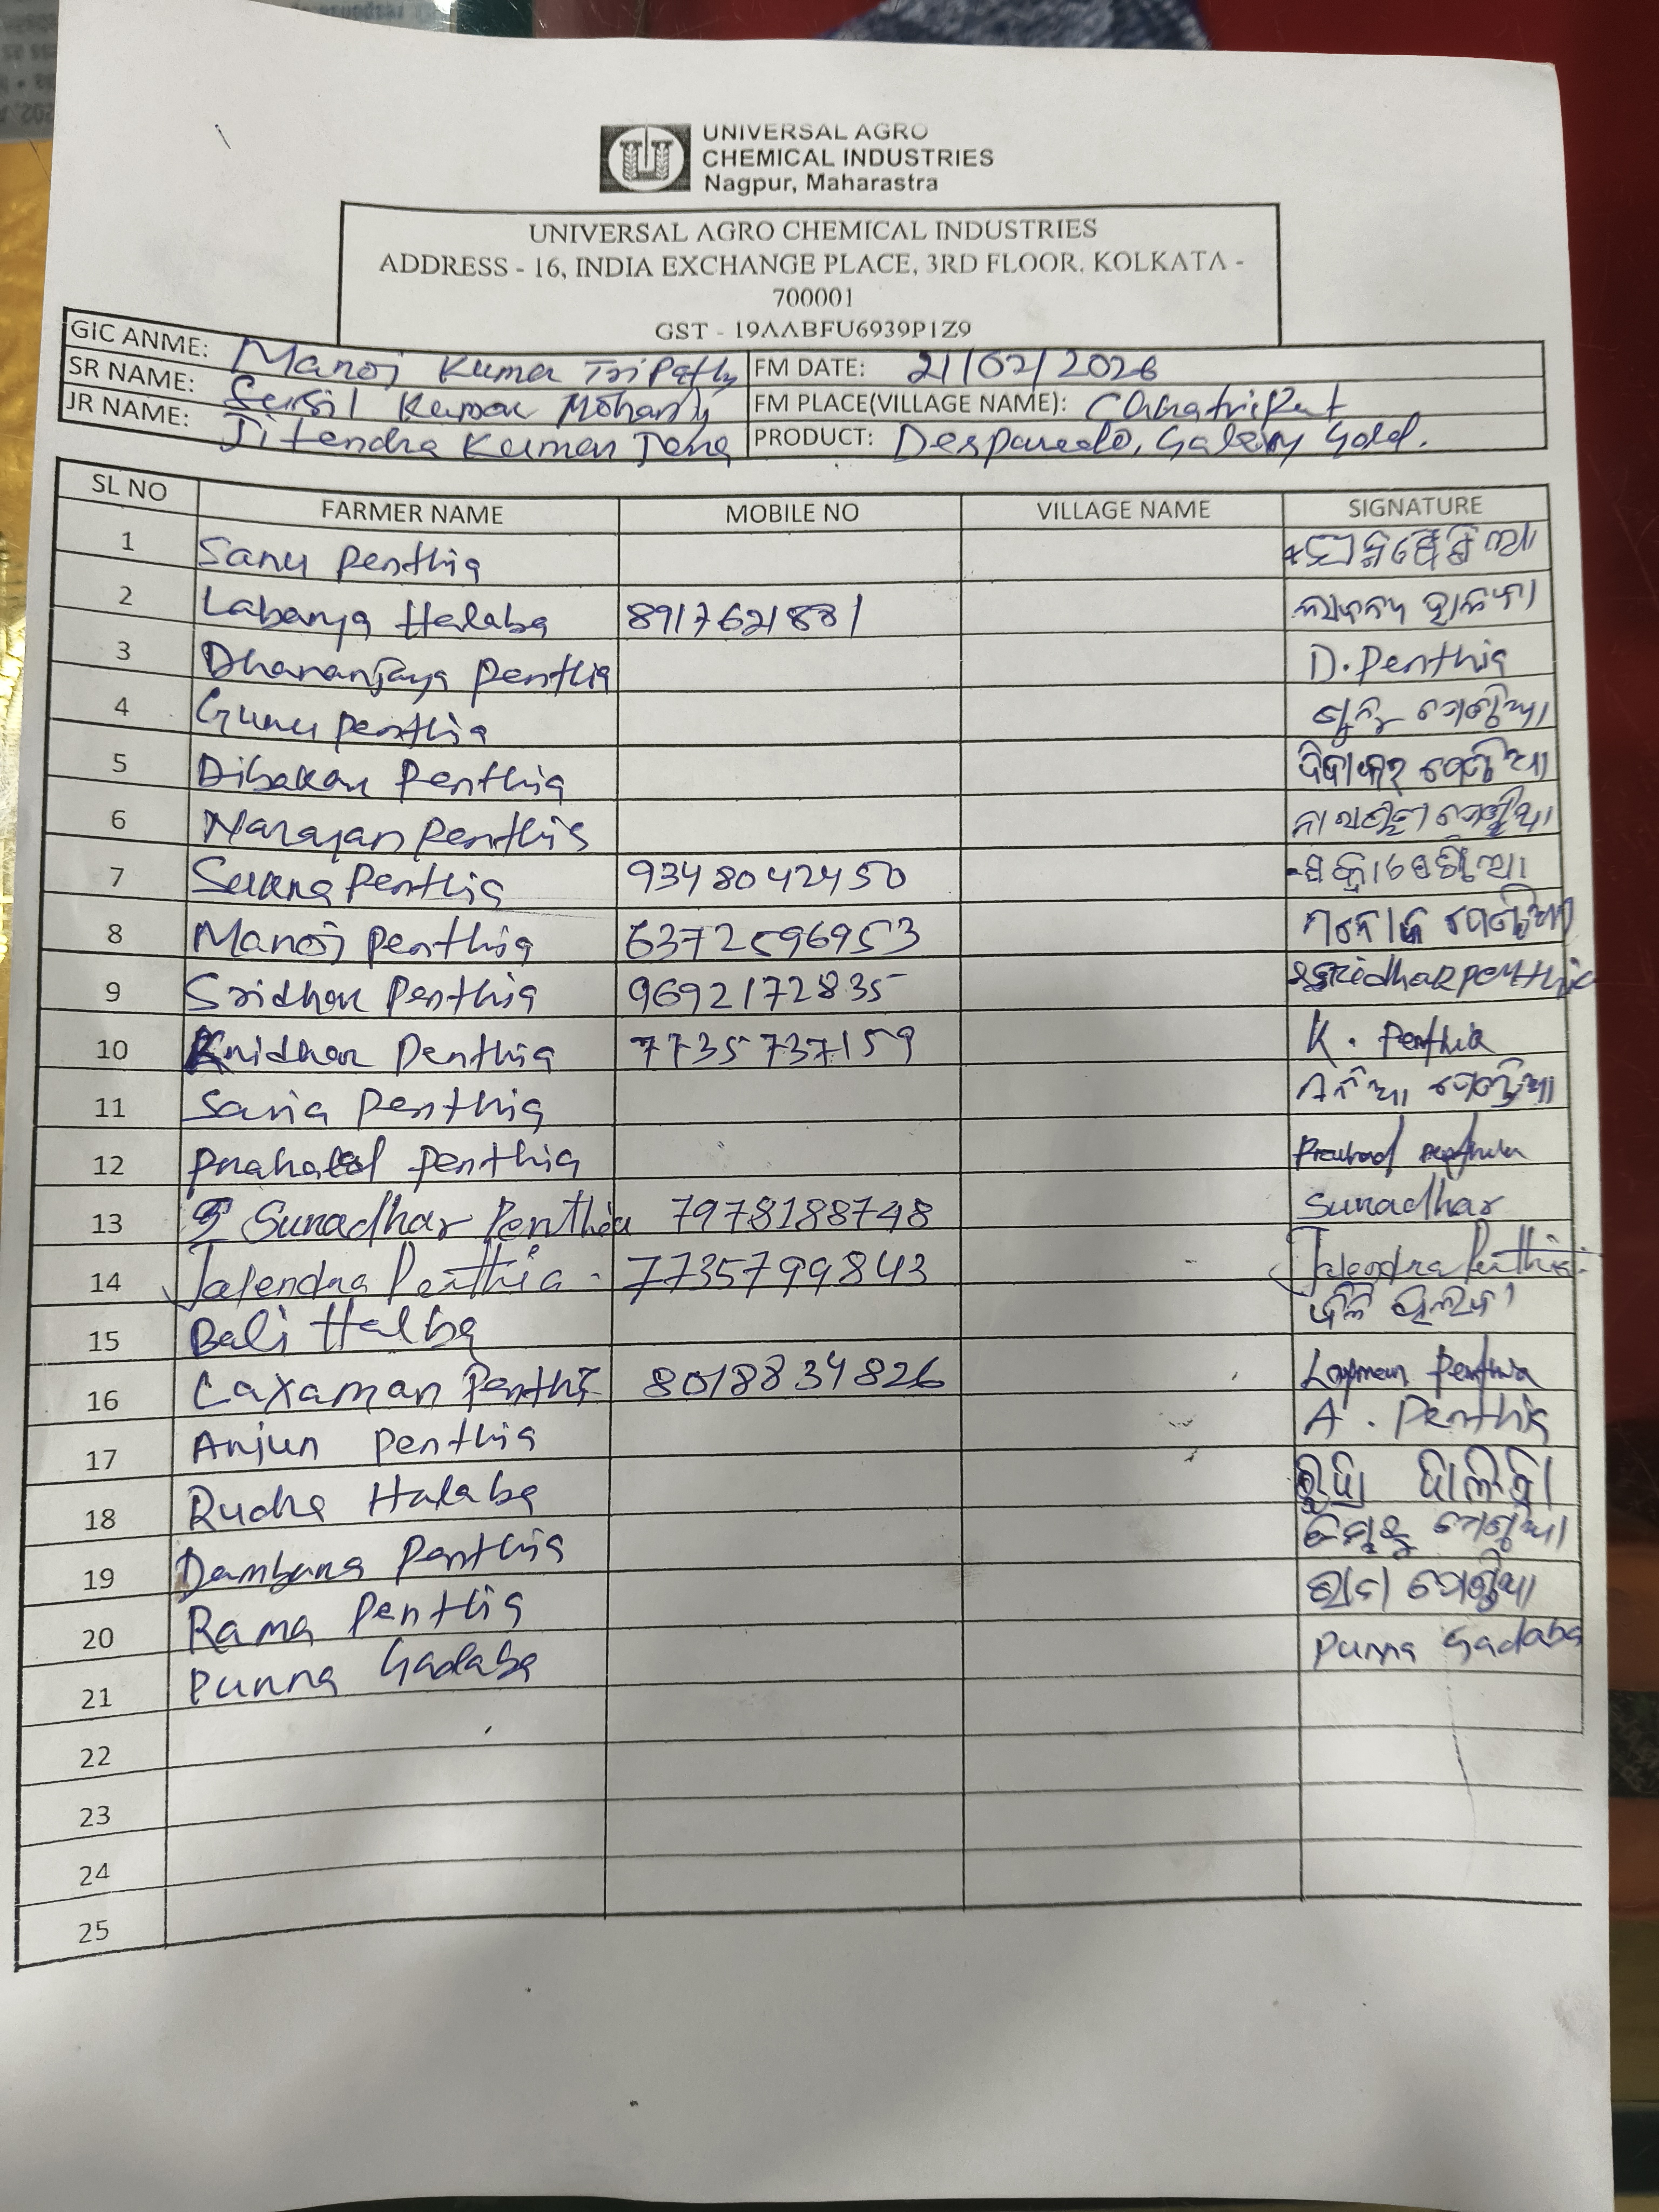 UNIVERSAL AGRO
CHEMICAL INDUSTRIES
Nagpur, Maharastra
UNIVERSAL AGRO CHEMICAL INDUSTRIES
ADDRESS - 16, INDIA EXCHANGE PLACE, 3RD FLOOR, KOLKATA -
700001
GST - 19AABFU6939P1Z9
GIC ANME: Manoj Kumar Tripathy FM DATE: 21/02/2026
SR NAME: Susil Kumar Mohanty FM PLACE(VILLAGE NAME):
JR NAME: Jitendra Kumar Jena PRODUCT: Desparado, Galaxy Gold.
SL NO FARMER NAME MOBILE NO VILLAGE NAME SIGNATURE
1 Sanu Penthia
2 Labanya Halaba 8917621881
3 Dhananjaya Penthia D. Penthia
4 Gunu Penthia
5 Dibakar Penthia ଦିବାକର ପେଣ୍ଠିଆ
6 Narayan Penthia
7 Sukra Penthia 9348042450
8 Manoj Penthia 6372596953 ମନୋଜ ପେଣ୍ଠିଆ
9 Sridhar Penthia 9692172835 Sridhar Penthia
10 Penthia 7735737159 K. Penthia
11 Penthia
12 Prahalad Penthia
13 Sunadhar Penthia 7978188748 Sunadhar
14 Jalendra Penthia 7735799843 Jalendra Penthia
15 Bali Halba
16 Laxaman Penthi 8018834826 Penthia
17 Arjun Penthia A. Penthia
18 Rudra Halaba
19 Penthia
20 Rama Penthia
21 Purna Gadaba Purna Gadaba
22
23
24
25